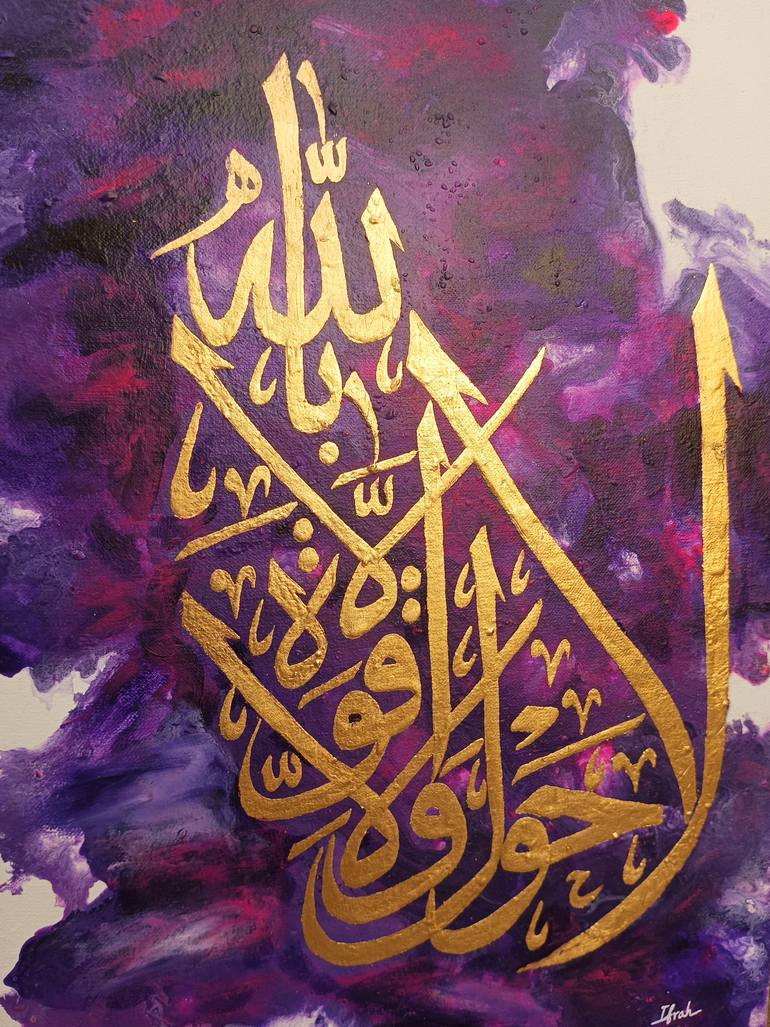 لا حول ولا قوة إلا بالله
Ifrah